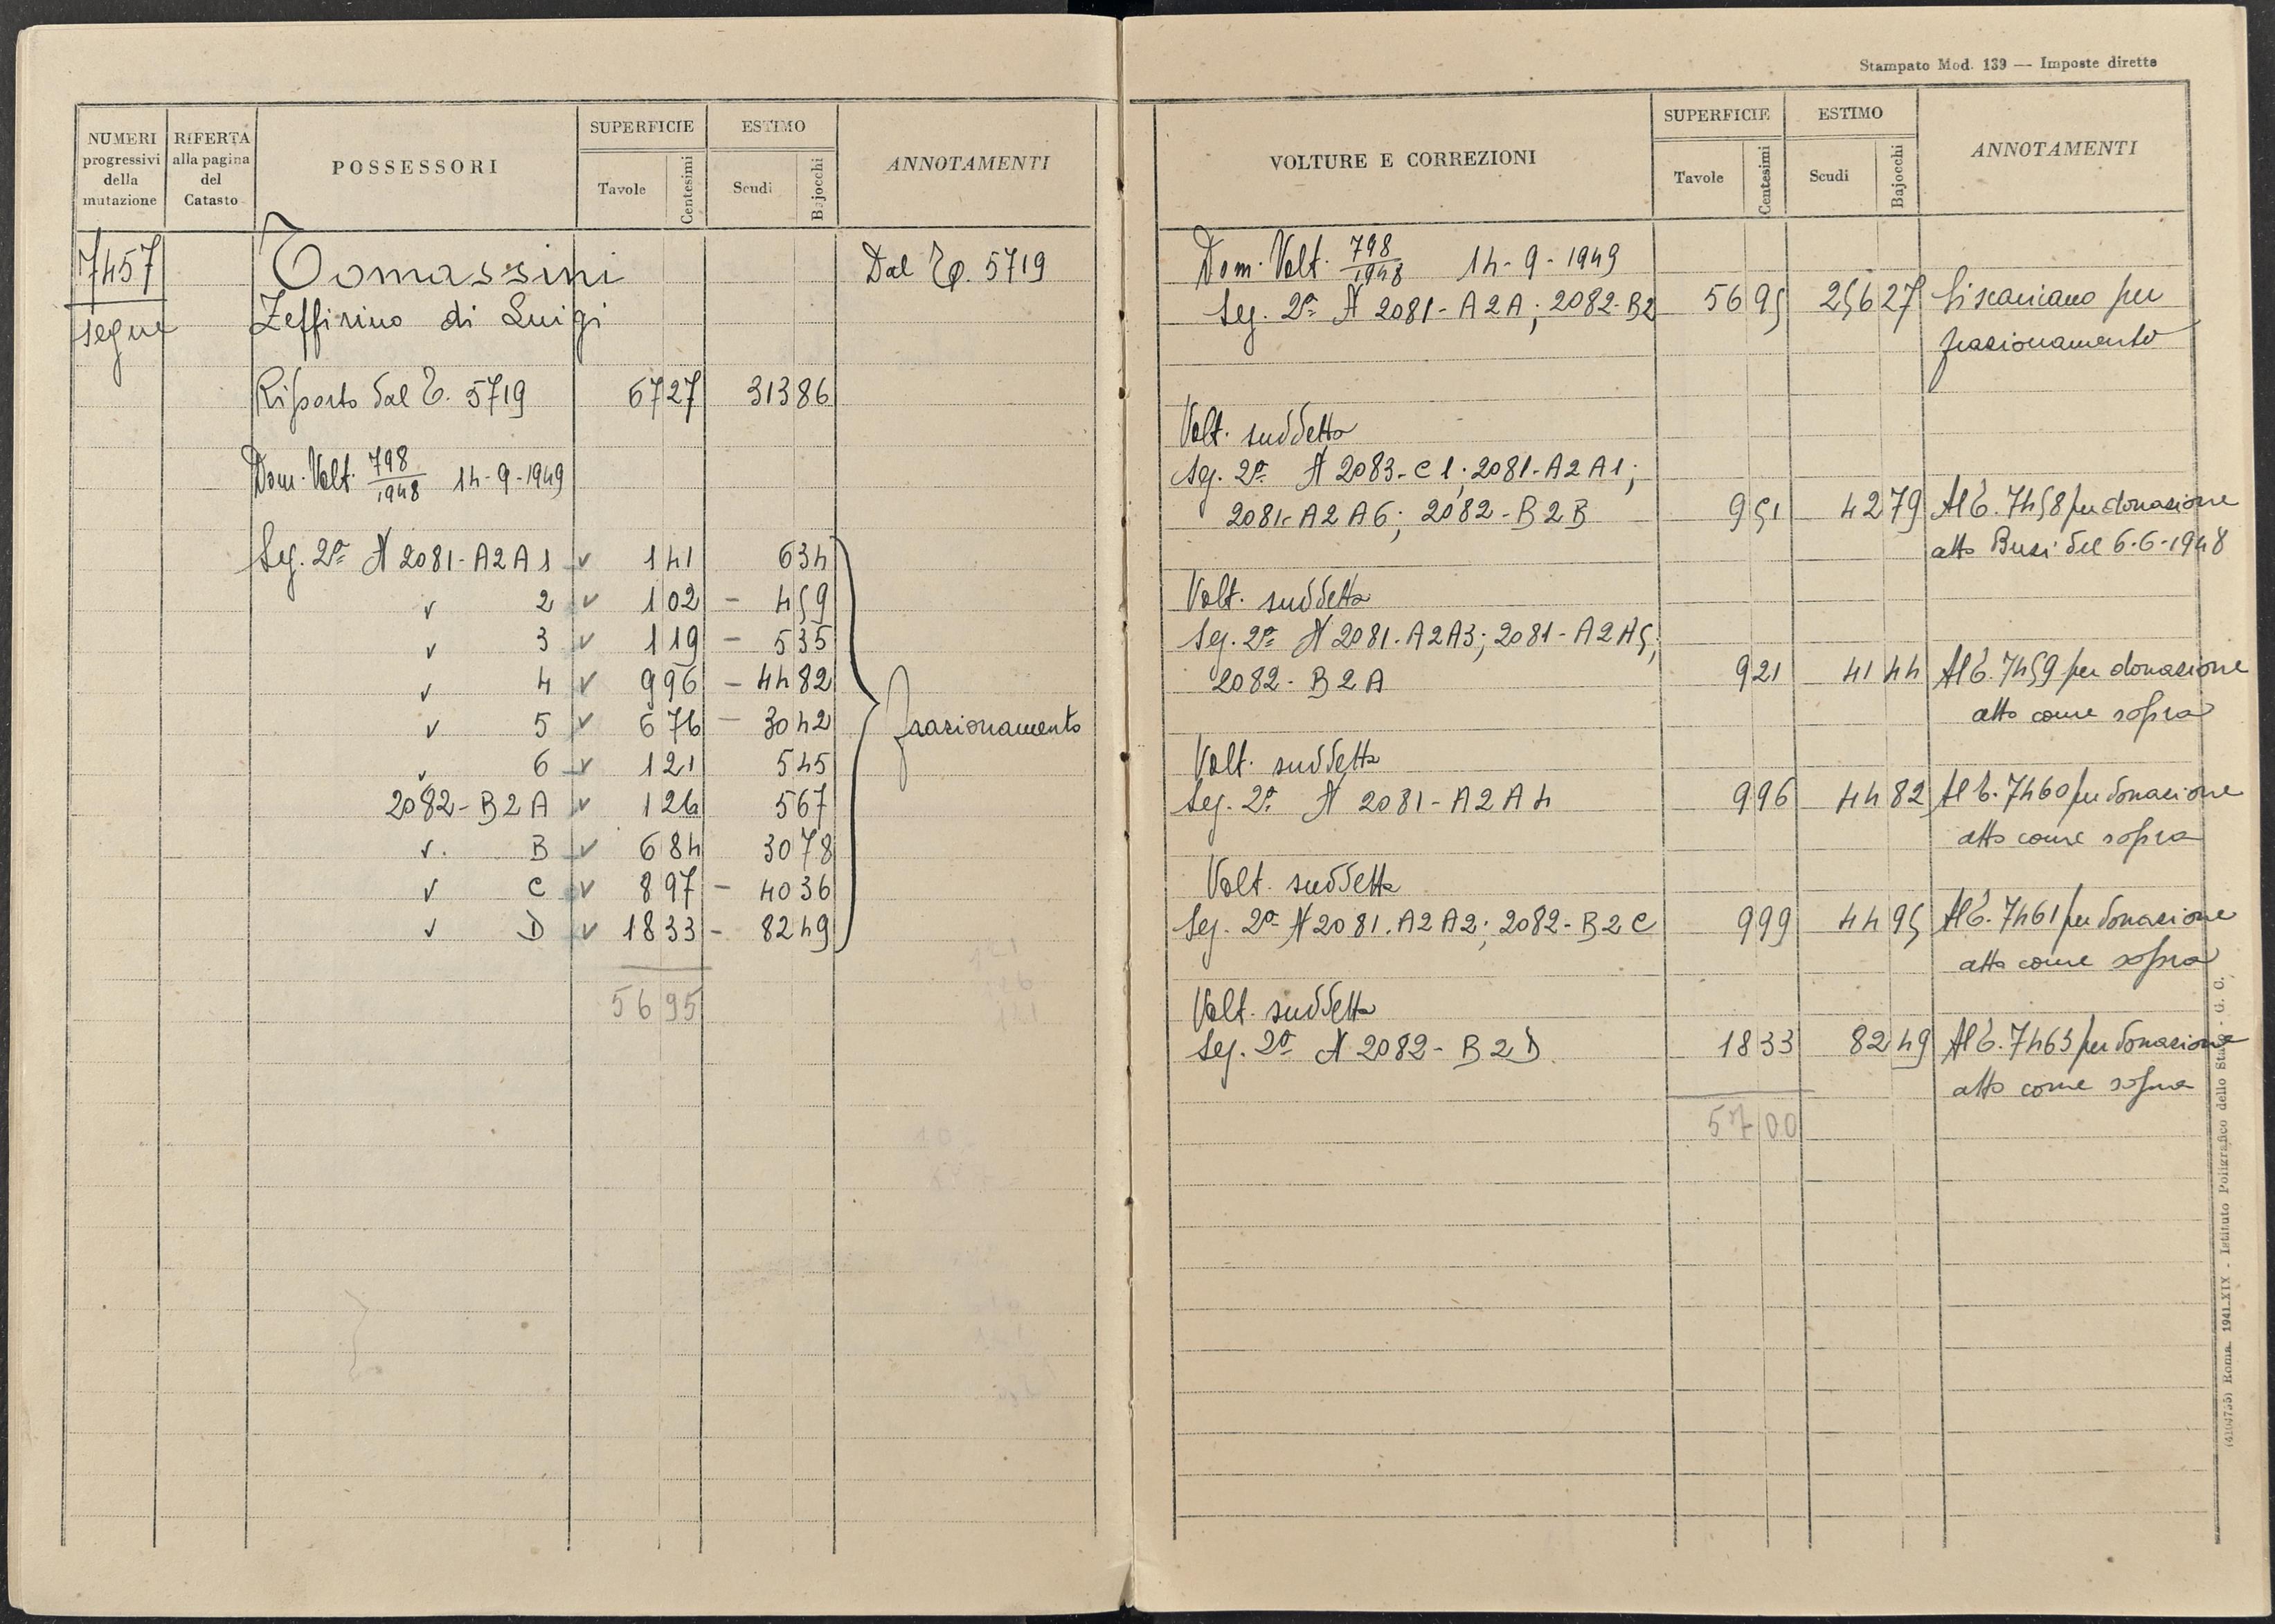 NUMERI progressivi della mutazione
RIFERTA alla pagina del Catasto
POSSESSORI
SUPERFICIE
Tavole
Centesimi
ESTIMO
Scudi
Bajocchi
ANNOTAMENTI
7457 Tomassini Dal T. 5719
segue Zeffirino di Luigi
Riporto dal T. 5719 67 27 313 86
Dom. Volt. 798/1948 14-9-1949
Seg. 2ª N 2081-A2A1 v 1 41 6 34
v 2 v 1 02 - 4 59
v 3 v 1 19 - 5 35
v 4 v 9 96 - 44 82
v 5 v 6 76 - 30 42 frazionamento
v 6 v 1 21 5 45
2082-B2A v 1 26 5 67
v. B v 6 84 30 78
v C v 8 97 - 40 36
v D v 18 33 - 82 49
56 95
Stampato Mod. 139 — Imposte dirette
VOLTURE E CORREZIONI
SUPERFICIE
Tavole
Centesimi
ESTIMO
Scudi
Bajocchi
ANNOTAMENTI
Dom. Volt. 798/1948 14-9-1949
Seg. 2ª N 2081-A2A; 2082-B2 56 95 256 27 Si scaricano per
frazionamento
Volt. suddetta
Seg. 2ª N 2083-C1; 2081-A2A1;
2081-A2A6; 2082-B2B 9 51 42 79 Al T. 7458 per donazione
atto Busi del 6-6-1948
Volt. suddetta
Seg. 2ª N 2081-A2A3; 2081-A2A5;
2082-B2A 9 21 41 44 Al T. 7459 per donazione
atto come sopra
Volt. suddetta
Seg. 2ª N 2081-A2A4 9 96 44 82 Al T. 7460 per donazione
atto come sopra
Volt. suddetta
Seg. 2ª N 2081.A2A2; 2082-B2C 9 99 44 95 Al T. 7461 per donazione
atto come sopra
Volt. suddetta
Seg. 2ª N 2082-B2D. 18 33 82 49 Al T. 7463 per donazione
atto come sopra
57 00
Roma, 1941-XIX - Istituto Poligrafico dello Stato - G. C.